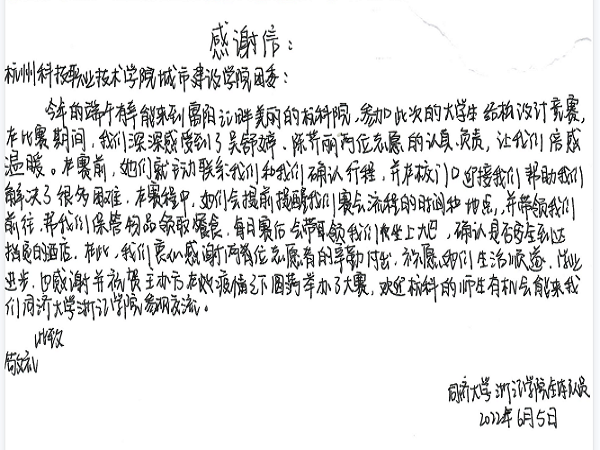 感谢信：
杭州科技职业技术学院城市建设学院团委：
今年的端午有幸能来到富阳江畔美丽的杭科院，参加此次的大学生结构设计竞赛，
在比赛期间，我们深深感受到了吴舒婷、陈荞丽两位志愿的认真负责，让我们倍感
温暖。在赛前，她们就主动联系我们和我们确认行程，并在校门口迎接我们帮助我们
解决了很多困难，在赛程中，她们会提前提醒我们赛会流程的时间和地点，并带领我们
前往，帮我们保管物品领取餐食，每日赛后会带领我们坐上大巴，确认是否安全到达
指定的酒店。在此，我们衷心感谢两位志愿者的辛勤付出，祝愿她们生活顺遂，学业
进步，也感谢并祝贺主办方在此疫情之下圆满举办了大赛，欢迎杭科的师生有机会能来我
们同济大学浙江学院参观交流。
此致
敬礼
同济大学浙江学院全体队员
2022年6月5日